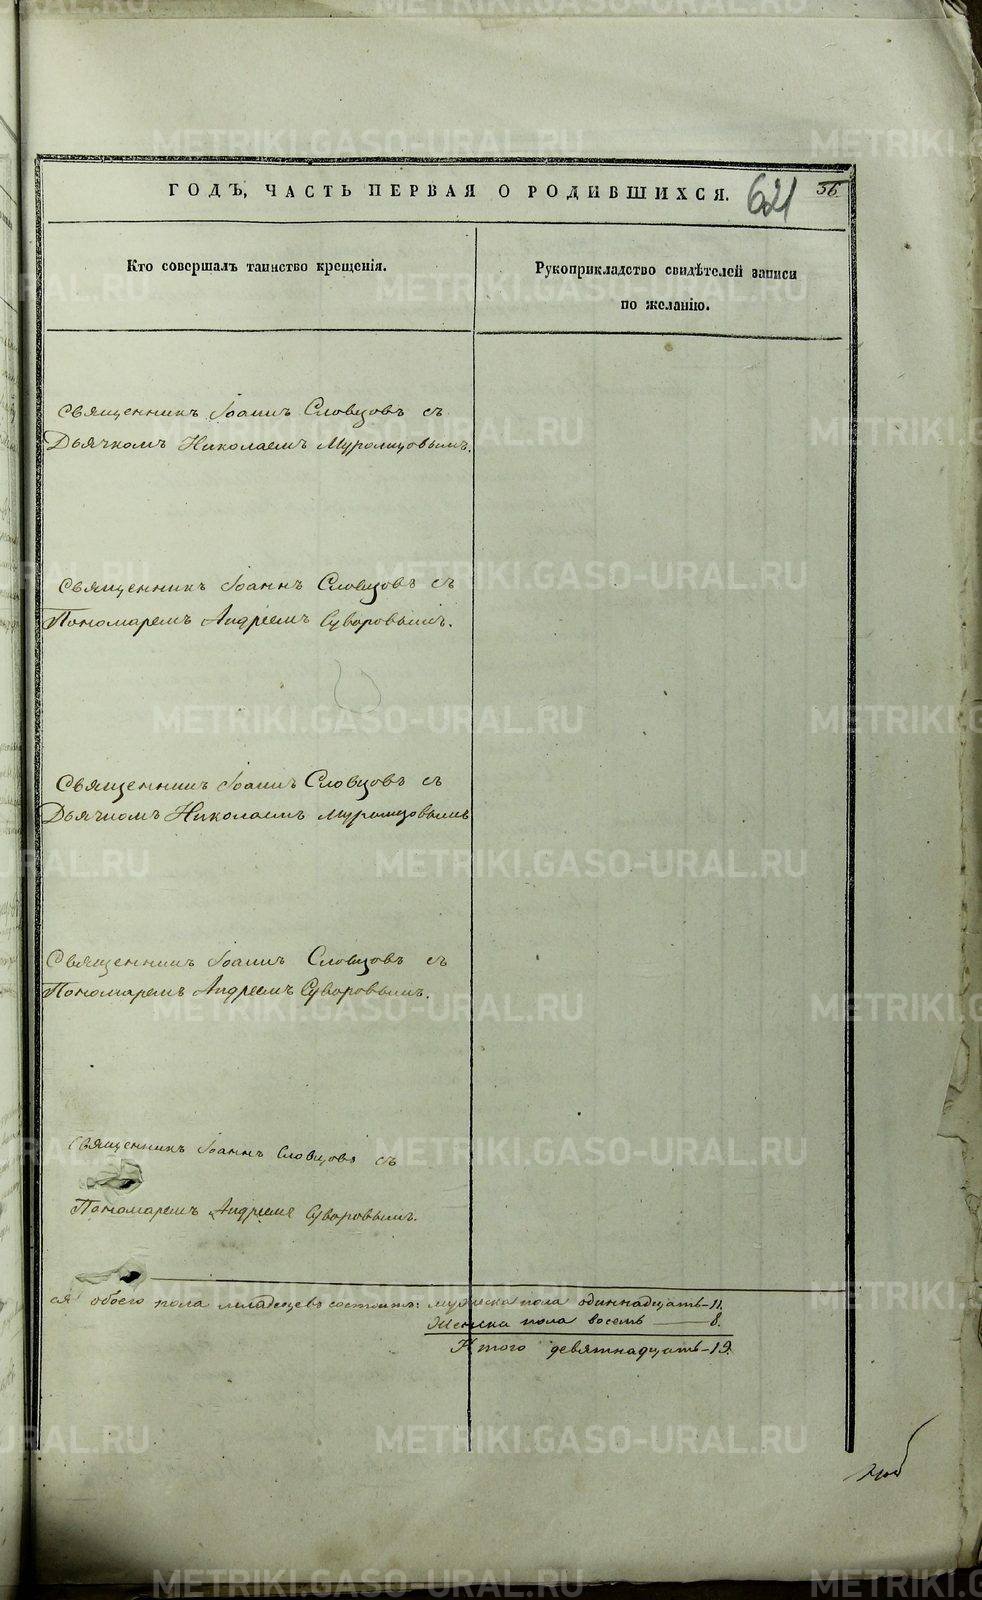 ГОДЪ, ЧАСТЬ ПЕРВАЯ О РОДИВШИХСЯ. 621 56.
Кто совершалъ таинство крещенія.
Рукоприкладство свидѣтелей записи
по желанію.
Священникъ Іоаннъ Словцовъ съ
Дьячкомъ Николаемъ Муромцовымъ.
Священникъ Іоаннъ Словцовъ съ
Пономаремъ Андреемъ Суворовымъ.
Священникъ Іоаннъ Словцовъ съ
Дьячкомъ Николаемъ Муромцовымъ
Священникъ Іоаннъ Словцовъ съ
Пономаремъ Андреемъ Суворовымъ.
Священникъ Іоаннъ Словцовъ съ
Пономаремъ Андреемъ Суворовымъ.
ся обоего пола младенцевъ состоитъ: мужеска пола одиннадцать - 11.
Женска пола восемь — 8.
Итого девятнадцать - 19.
METRIKI.GASO-URAL.RU